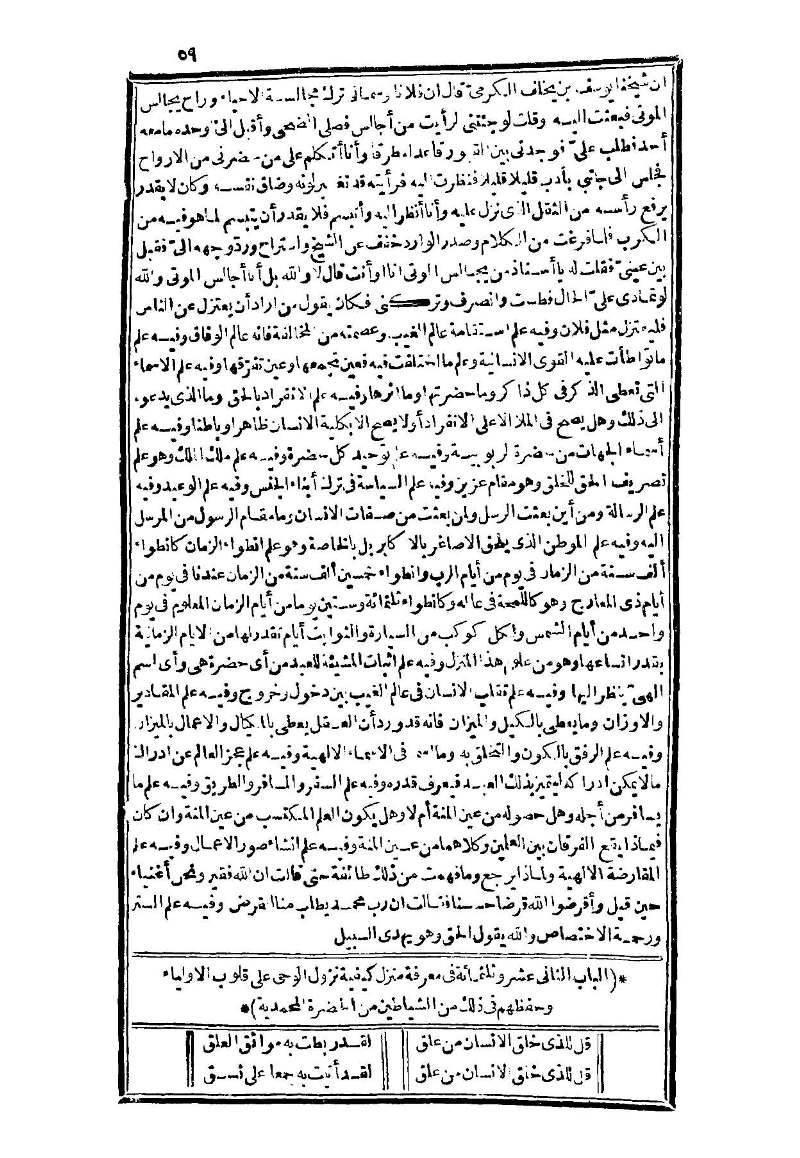 ٥٩
ان شيخنا يوسف بن يخلف الكومي قال ان فلانا وسماني ترك مجالسة الاحياء وراح يجالس
الموتى فبعثت اليه وقلت لو جئتني لرأيت من أجالس فصلى الضحى وأقبل الىّ وحده مامعه
أحد فطلب علىّ فوجدني بين القبور قاعدا مطرقا وأنا أتكلم على من حضرني من الارواح
فجلس الى جانبي بأدب قليلا قليلا فنظرت اليه فرأيته قد تغير لونه وضاق نفسه وكان لا يقدر
يرفع رأسه من الثقل الذى نزل عليه وأنا أنظر اليه وأتبسم فلا يقدر أن يتبسم لما هو فيه من
الكرب فلما فرغت من الكلام وصدر الوارد خفف عن الشيخ واستراح ورد وجهه الىّ فقبل
بين عينىّ فقلت له يا أستاذ من يجالس الموتى انا أو أنت قال لا والله بل أنا أجالس الموتى والله
لو تمادى علىّ الحال فطست وانصرف وتركني فكان يقول من اراد أن يعتزل عن الناس
فليعتزل مثل فلان وفيه علم استقامة عالم الغيب وعصمته من المخالفة فانه عالم الوفاق وفيه علم
ما تواطأت عليه القوى الانسانية وعلم ما اختلفت فيه فعين تجمعها وعين تفرقها وفيه علم الاسماء
التي تعطى الذكر فى كل ذاكر وما حضرتها وما اثرها وفيه علم الانفراد بالحق وما الذى يدعو
الى ذلك وهل يصح فى الملا الاعلى الانفراد أو لا يصح الا بكلية الانسان ظاهرا وباطنا وفيه علم
أسماء الجهات من حضرة الربوبية وفيه علم توحيد كل حضرة وفيه علم ملك الملك وهو علم
تصريف الحق للخلق وهو مقام عزيز وفيه علم السياسة فى ترك أبناء الجنس وفيه علم الوعيد وفيه
علم الرسالة ومن أين بعثت الرسل ولمن بعثت من صفات الانسان وما مقام الرسول من المرسل
اليه وفيه علم الموطن الذى يلحق الاصاغر بالاكابر بل بالخاصة وهو علم انطواء الزمان كانطواء
ألف سنة من الزمان فى يوم من أيام الرب وانطواء خمسين ألف سنة من الزمان عندنا فى يوم من
أيام ذى المعارج وهو كاللمحة فى عالمه وكانطواء ثلثمائة وستين يوما من أيام الزمان المعلوم فى يوم
واحد من أيام الشمس ولكل كوكب من السيارة والثوابت أيام تقدر لها من الايام الزمانية
بقدر اتساعها وهو من علوم هذا المنزل وفيه علم اثبات المشيئة للعبد من أى حضرة هى وأى اسم
الهىّ ينظر اليها وفيه علم تقلب الانسان فى عالم الغيب بين دخول وخروج وفيه علم المقادير
والاوزان وما يعطى بالكيل والميزان فانه قد ورد أن العقل يعطى بالمكيال والاعمال بالميزان
وفيه علم الرفق بالكون والتخلق به وماله فى الاسماء الالهية وفيه علم عجز العالم عن ادراك
ما لا يمكن ادراكه ليتميز بذلك العبد فيعرف قدره وفيه علم السفر والمسافر والطريق وفيه علم ما
يسافر من أجله وهل حصوله من عين المنة أم لا وهل يكون العلم المكتسب من عين المنة وان كان
فبماذا يقع الفرقان بين العلمين وكلاهما من عين المنة وفيه علم انشاء صور الاعمال وفيه علم
المقارضة الالهية ولماذا يرجع وما فهمت من ذلك طائفة حتى قالت ان الله فقير ونحن أغنياء
حين قيل وأقرضوا الله قرضا حسنا فقالت ان رب محمد يطلب منا القرض وفيه علم الستر
ورحمة الاختصاص والله يقول الحق وهو يهدى السبيل
*(الباب الثانى عشر وثلثمائة فى معرفة منزل كيفية نزول الوحى على قلوب الاولياء
وحفظهم فى ذلك من الشياطين من الحضرة المحمدية)*
قل للذى خلق الانسان من علق لقد ربطت به موائق العلق
قل للذى خلق الانسان من علق لقد أتيت به جمعا على نسق